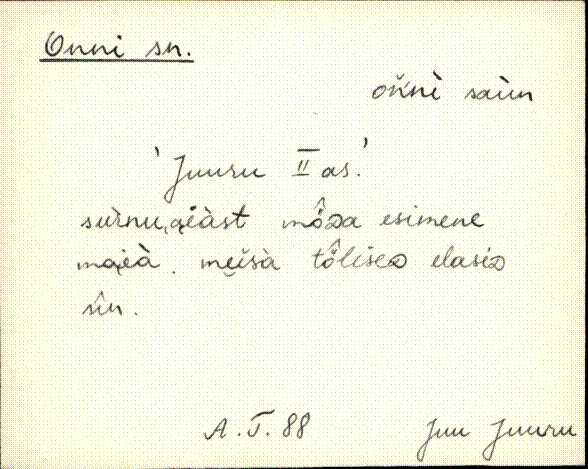 Onni sn.
oǹnì saùn
'Juuru II as.'
suŕnu,aiàst mõ̭ᴅa esimene
majà. mei̭sà tõ̭liseᴅ elasiᴅ
sîn.
A.T.88 Juu Juuru